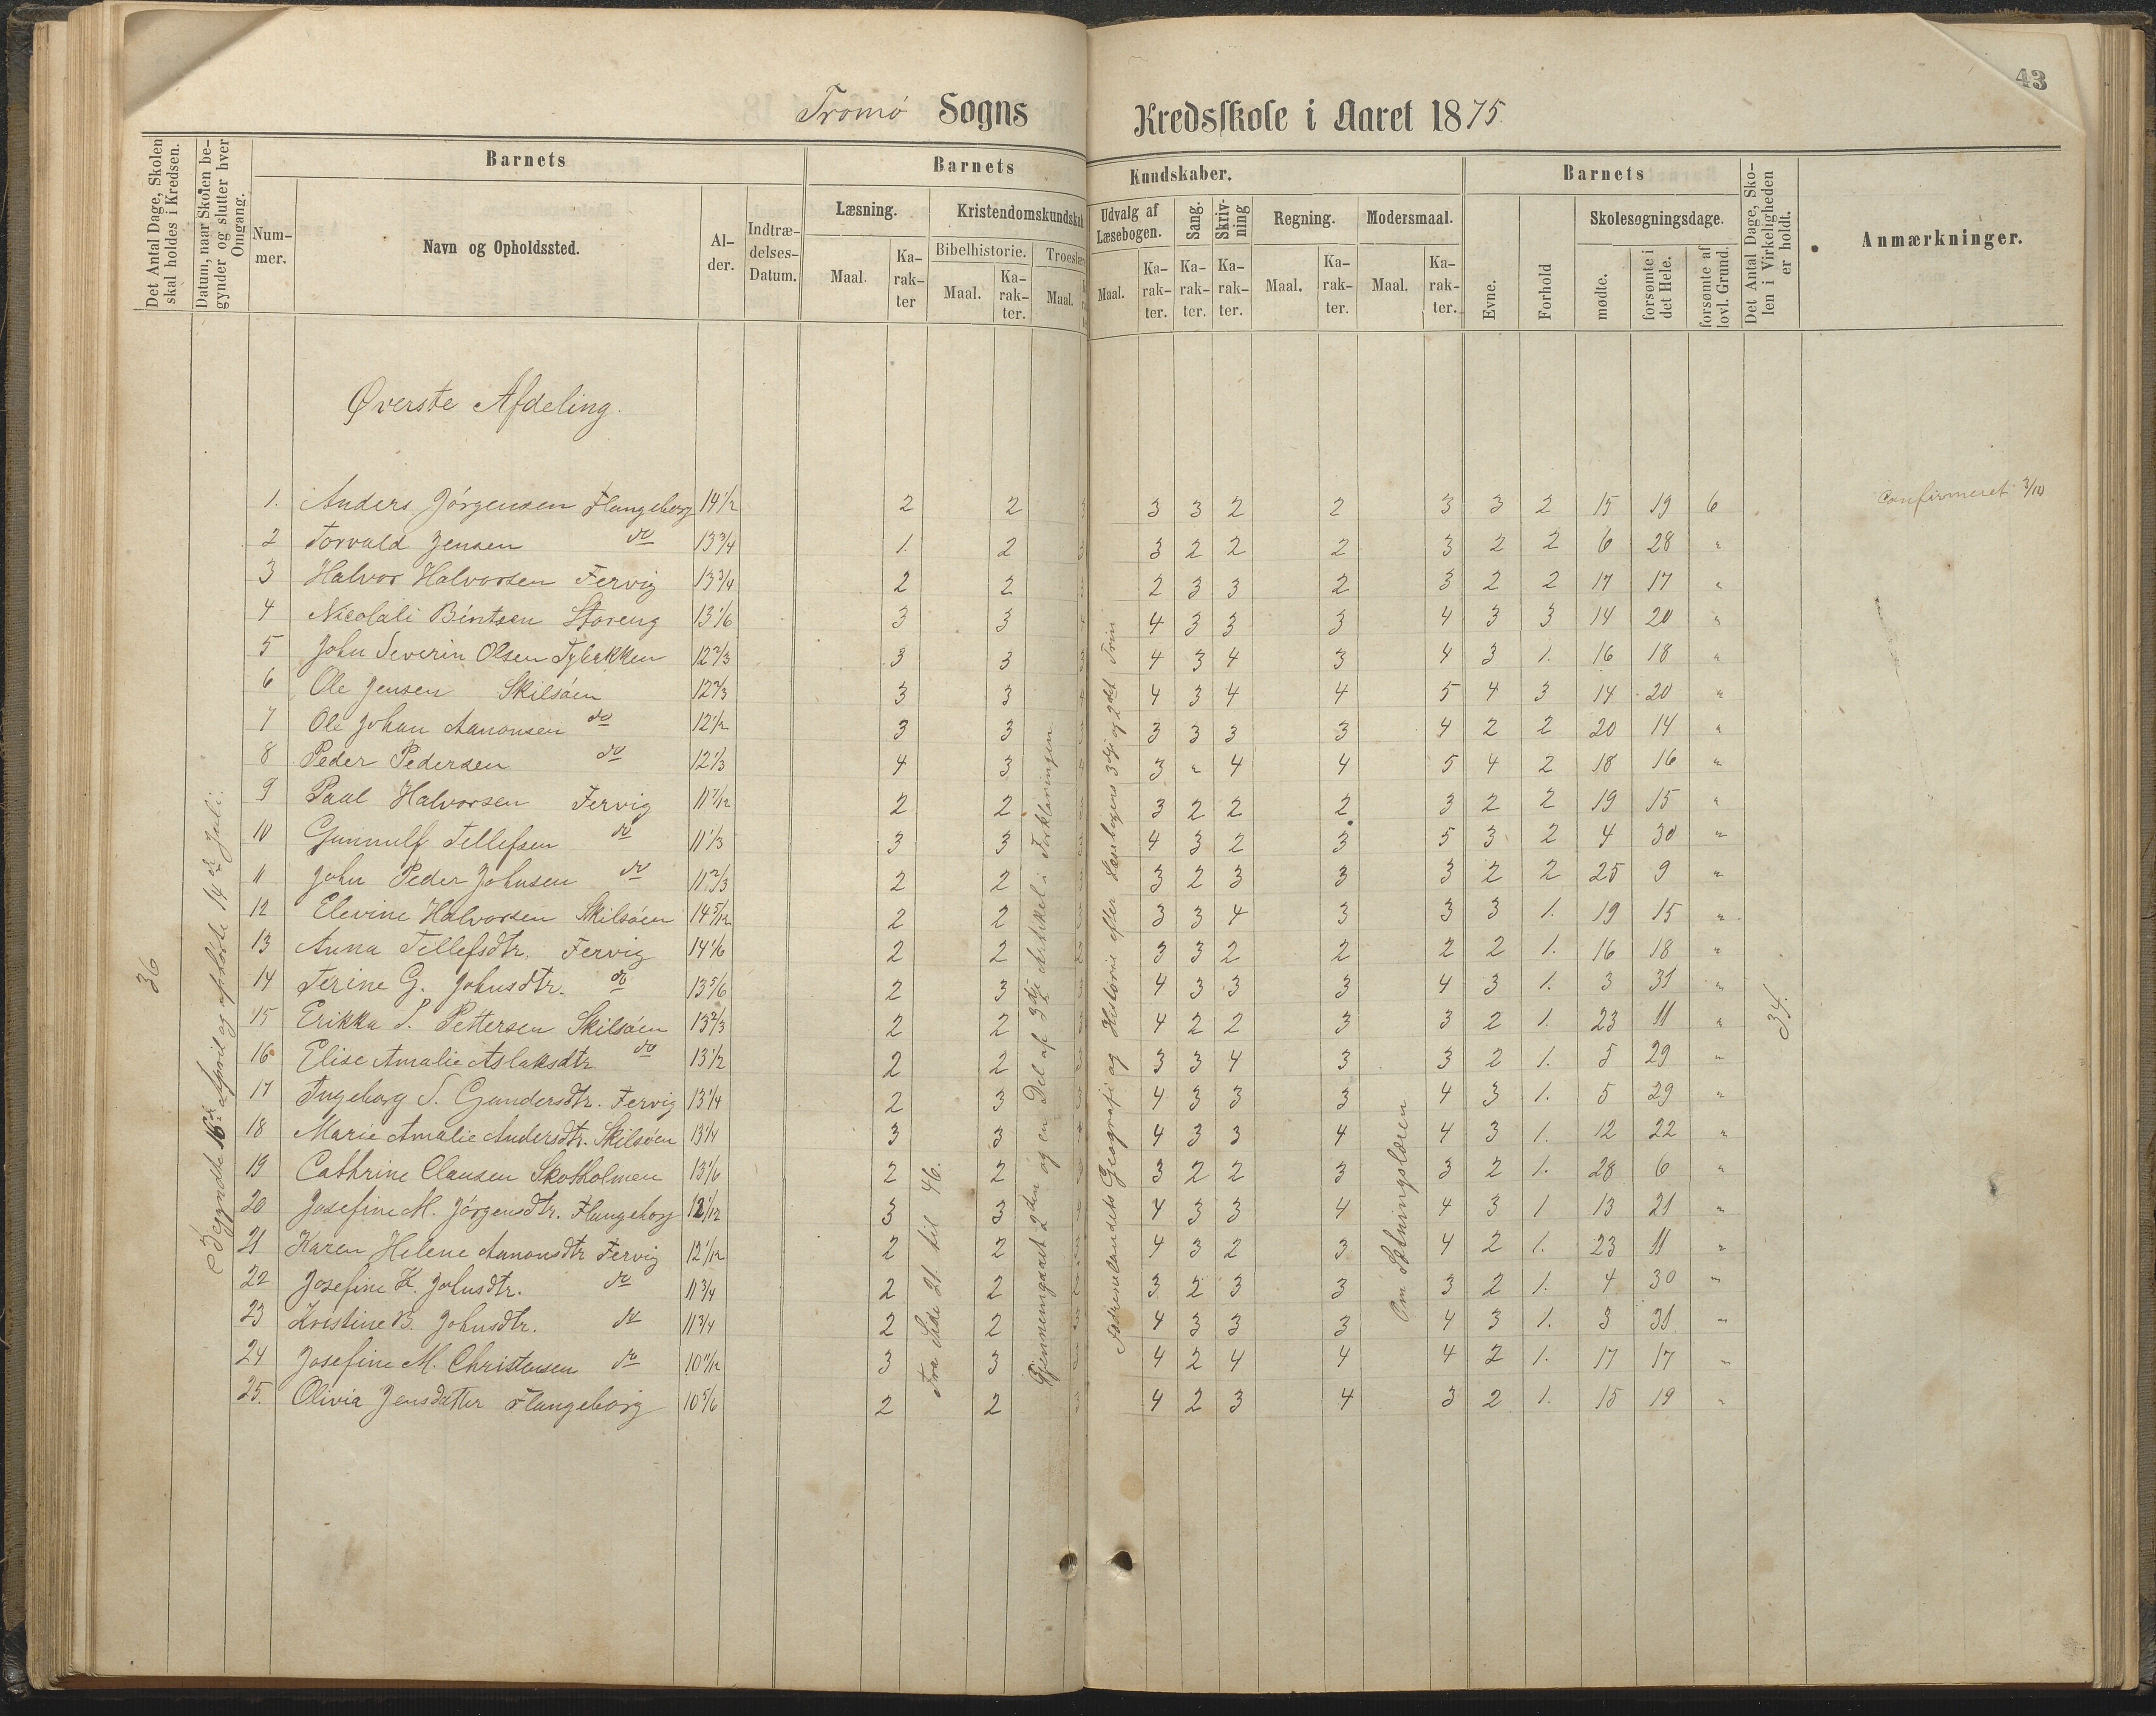 43
Tromø Sogns Kredsskole i Aaret 1875.
Det Antal Dage, Skolen skal holdes i Kredsen.
Datum, naar Skolen begynder og slutter hver Omgang.
Barnets
Nummer.
Navn og Opholdssted.
Alder.
Indtrædelses-Datum.
Barnets Kundskaber.
Læsning.
Maal. Karakter
Kristendomskundskab
Bibelhistorie.
Maal. Karakter.
Troeslære
Maal.
Udvalg af Læsebogen.
Maal. Karakter.
Sang. Karakter.
Skrivning Karakter.
Regning.
Maal. Karakter.
Modersmaal.
Maal. Karakter.
Barnets
Evne.
Forhold
Skolesøgningsdage.
mødte.
forsømte i det Hele.
forsømte af lovl. Grund.
Det Antal Dage, Skolen i Virkeligheden er holdt.
Anmærkninger.
Øverste Afdeling.
1. Anders Jørgensen Flangeborg 14 1/2 2 2 3 3 3 2 2 3 3 2 15 19 6 Confirmeret 3/10
2 Torvald Jensen do 13 3/4 1. 2 3 3 2 2 2 3 2 2 6 28 "
3 Halvor Halvorsen Fervig 13 3/4 2 2 2 3 3 2 3 2 2 17 17 "
4 Nicolali Bentsen Støreng 13 1/6 3 3 4 3 3 3 4 3 3 14 20 "
5 John Severin Olsen Tybakken 12 2/3 3 3 4 3 4 3 4 3 1. 16 18 "
6 Ole Jensen Skilsøen 12 2/3 3 3 4 3 4 4 5 4 3 14 20 "
7 Ole Johan Aanonsen do 12 1/2 3 3 3 3 3 3 4 2 2 20 14 "
8 Peder Pedersen do 12 1/3 4 3 3 " 4 4 5 4 2 18 16 "
9 Paul Halvorsen Fervig 11 7/12 2 2 3 2 2 2 3 2 2 19 15 "
10 Gunnulf Tellefsen do 11 1/3 3 3 4 3 2 3 5 3 2 4 30 "
11 John Peder Johnsen do 11 2/3 2 2 3 2 3 3 3 2 2 25 9 "
12 Elevine Halvorsen Skilsøen 14 5/12 2 2 3 3 4 3 3 3 1. 19 15 "
13 Anna Tellefsdtr. Fervig 14 1/6 2 2 3 3 2 2 2 2 1. 16 18 "
14 Terine G. Johnsdtr. do 13 5/6 2 3 4 3 3 3 4 3 1. 3 31 "
15 Erikka S. Pettersen Skilsøen 13 2/3 2 2 4 2 2 3 3 2 1. 23 11 "
16 Elise Amalie Aslaksdtr. do 13 1/2 2 2 3 3 4 3 3 2 1. 5 29 "
17 Ingeborg S. Gundersdtr. Fervig 13 1/4 2 3 4 3 3 3 4 3 1. 5 29 "
18 Marie Amalie Andersdtr. Skilsøen 13 1/4 3 3 4 3 3 4 4 3 1. 12 22 "
19 Cathrine Clausen Skotholmen 13 1/6 2 2 3 2 2 3 3 2 1. 28 6 "
20 Josefine M. Jørgensdtr. Flangeborg 12 1/12 3 3 4 3 3 4 4 3 1 13 21 "
21 Karen Helene Aanonsdtr Fervig 12 1/12 2 2 4 3 2 3 4 2 1. 23 11 "
22 Josefine K. Johnsdtr. do 11 3/4 2 2 3 2 3 3 3 2 1. 4 30 "
23 Kristine B. Johnsdtr. do 11 3/4 2 2 4 3 3 3 4 3 1. 3 31 "
24 Josefine M. Christensen do 10 11/12 3 3 4 2 4 4 4 2 1. 17 17 "
25. Olivia Jensdatter Flangeborg 10 5/6 2 2 3 4 2 3 4 3 2 1. 15 19 "
36
Begyndte 16de April og ophørte 14de Juli.
Fra Side 21 til 46.
Gjennemgaaet 2den og en Del af 3die Artikel i Forklaringen
Fædrenelandets Geografi og Historie efter Læsebogens 3die og 2det Trin
Om Sætningslæren
34.